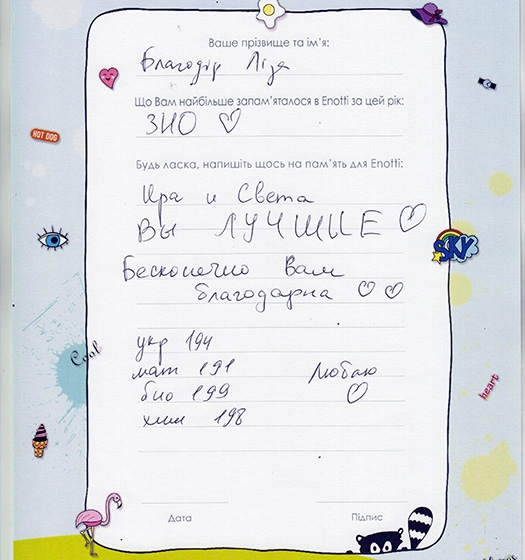 Ваше прізвище та ім'я:
Благодір Ліза
Що Вам найбільше запам'яталося в Enotti за цей рік:
ЗНО
HOT DOG
Будь ласка, напишіть щось на пам'ять для Enotti:
Ира и Света
Вы ЛУЧШИЕ
SKY
Бесконечно Вам
благодарна
укр 194
Cool
мат 191 Люблю
heart
био 199
хим 198
Дата Підпис